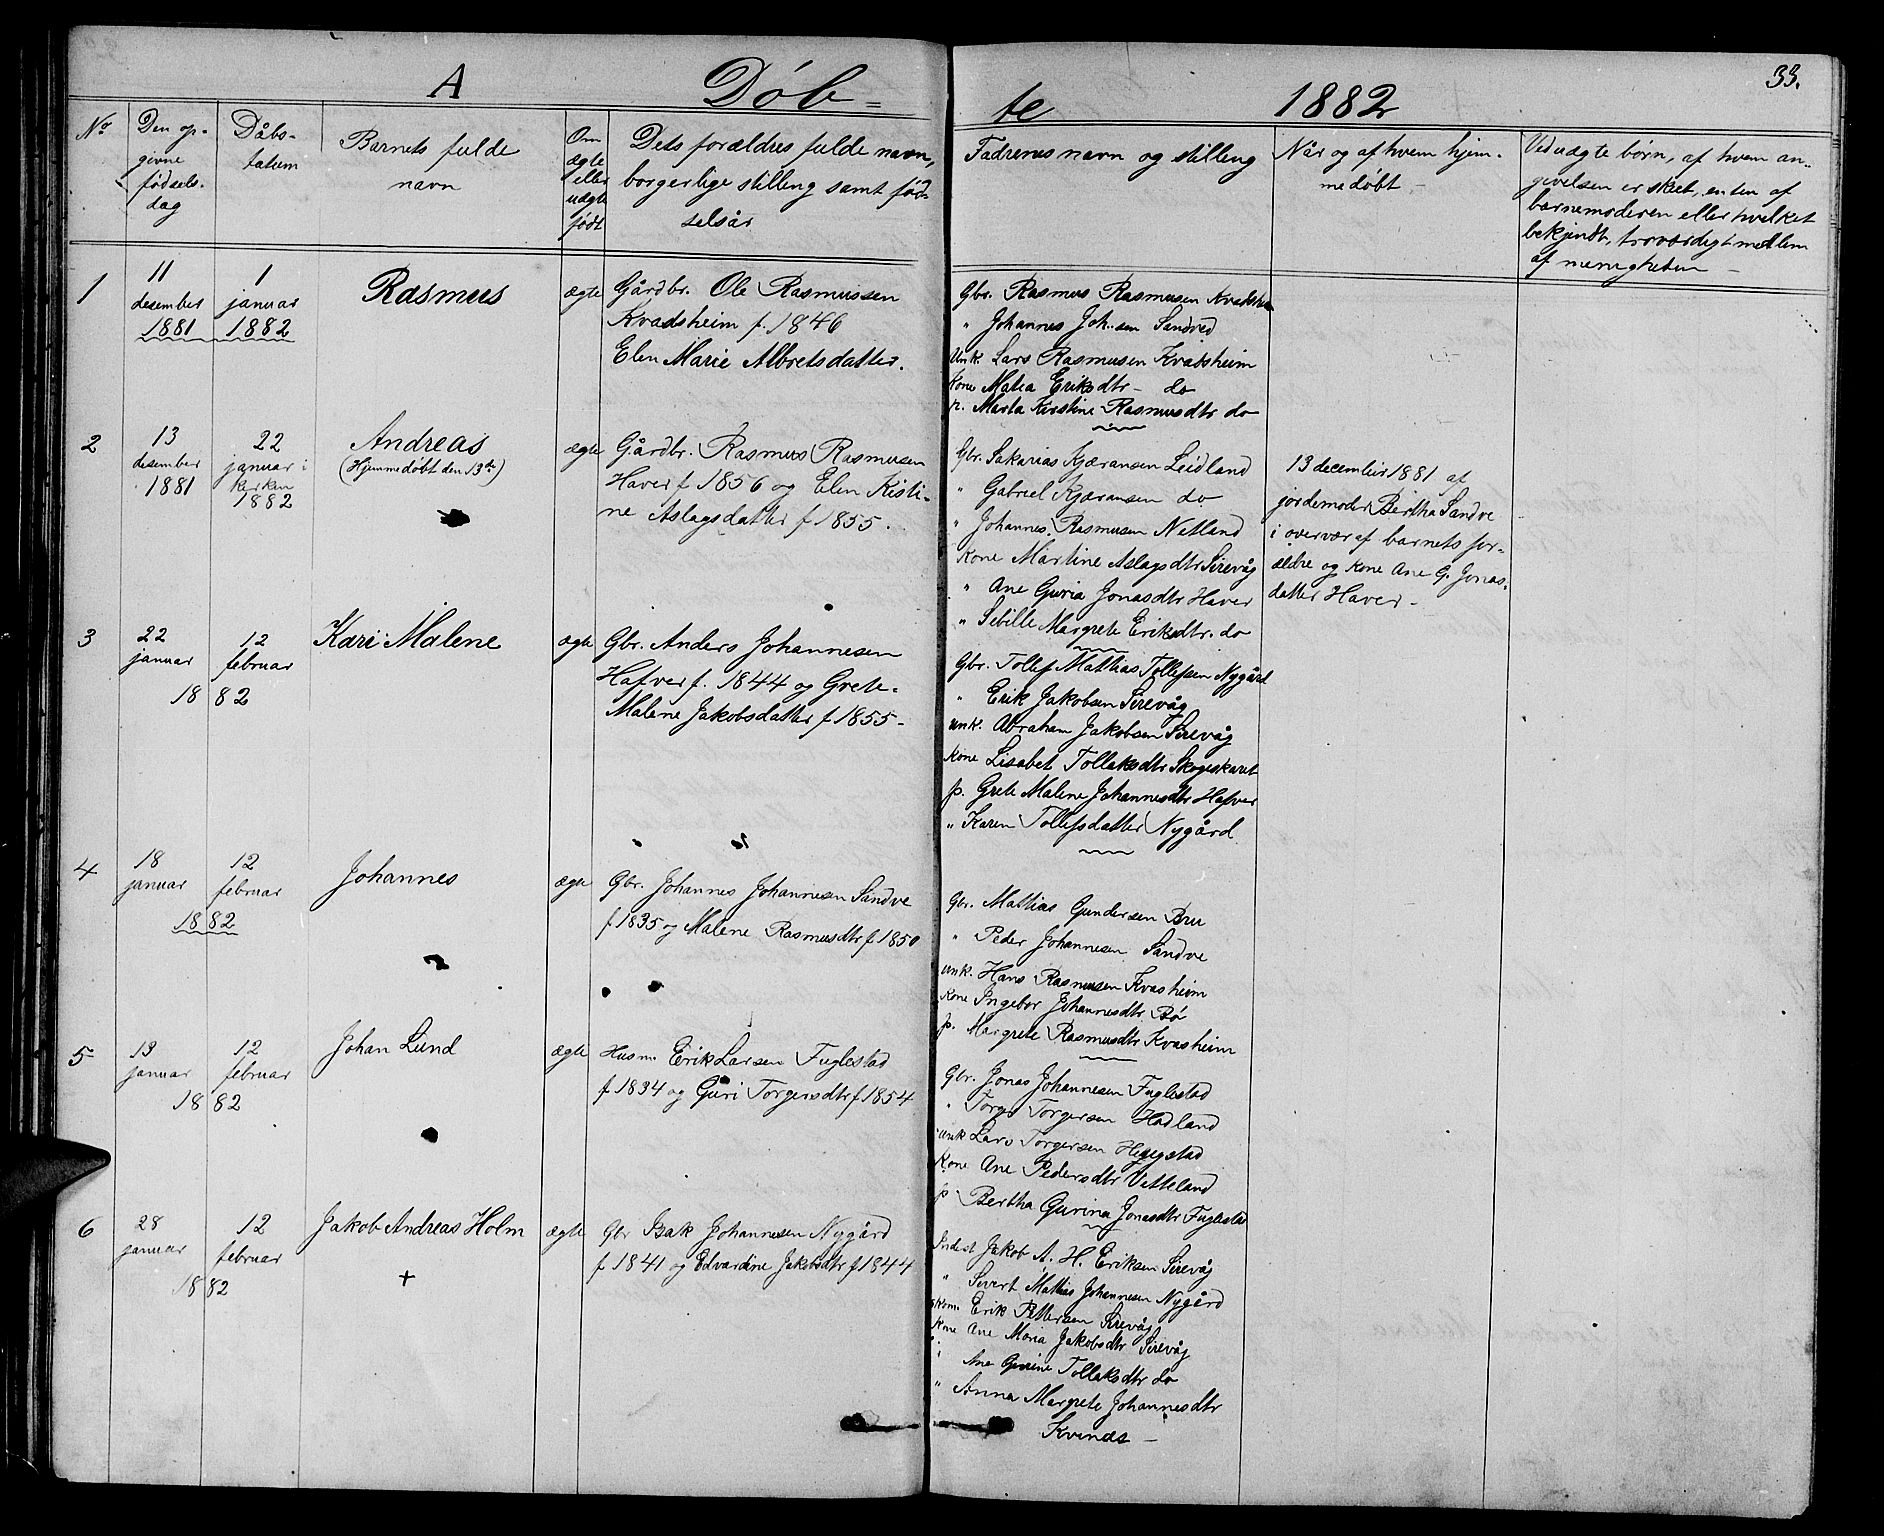 A Døb=
te 1882
33.
No
Den op-
givne
fødsels-
dag
Dåbs-
datum
Barnets fulde
navn
Om
ægte
eller
uægte
født
Dets forældres fulde navn,
borgerlige stilling samt fød-
selsår
Fadrenes navn og stilling
Når og af hvem hjem-
medøbt
Ved uægte børn, af hvem an-
givelsen er skeet, enten af
barnemoderen eller hvilket
bekjendt, troværdigt medlem
af menigheden
1
11
desember
1881
1
januar
1882
Rasmus
ægte
Gårdbr. Ole Rasmussen
Kvadsheim f. 1846
Elen Marie Albretsdatter.
Gbr. Rasmus Rasmusen Kvadsheim
" Johannes Joh..sen Sandved
Unk. Lars Rasmusen Kvatsheim
Kone Malea Eriksdtr - do
p. Marta Kirstine Rasmusdtr do
2
13
desember
1881
22
januar i
kirken
1882
Andreas
(Hjemmedøbt den 13de)
ægte
Gårdbr. Rasmus Rasmusen
Haver f 1856 og Elen Kisti-
ne Aslagsdatter f 1855.
Gbr. Sakarias Kjæransen Leidland
" Gabriel Kjæransen do
" Johannes Rasmusen Netland
Kone Martine Aslagsdtr Sirevåg
" Ane Guria Jonasdtr Haver
" Sibille Margrete Eriksdtr. do
13 december 1881 af
jordemoder Bertha Sandve
i overvær af barnets for-
ældre og Kone Ane G. Jonas-
datter Haver -
3
22
januar
12
februar
1882
Kari Malene
ægte
Gbr. Anders Johannesen
Hafver f. 1844 og Grete
Malene Jakobsdatter f 1855-
Gbr. Tollef Mathias Tollefsen Nygård
" Erik Jakobsen Sirevåg
unk. Abraham Jakobsen Sirevåg
Kone Lisabet Tollaksdtr Skogeskaret
p. Grete Malene Johannesdtr Hafver
" Karen Tollefsdatter Nygård
4
18
januar
12
februar
1882
Johannes
ægte
Gbr. Johannes Johannesen Sandve
f 1835 og Malene Rasmusdtr f 1850
Gbr. Mattias Gundersen Bru
" Peder Johannesen Sandve
unk. Hans Rasmusen Kvasheim
Kone Ingebor Johannesdtr. Bø
p. Margrete Rasmusdtr Kvasheim
5
13
januar
12
februar
1882
Johan Lund
ægte
Husm. Erik Larsen Fuglestad
f 1834 og Guri Torgersdtr f 1854
Gbr. Jonas Johannesen Fuglestad
" Torger Torgersen Hadland
unk Lars Torgersen Hegestad
Kone Ane Pedersdtr Vetteland
p Bertha Gurina Jonasdtr Fuglestad
6
28
januar
12
februar
1882
Jakob Andreas Holm
+
ægte
Gbr Isak Johannesen Nygård
f 1841 og Edvardine Jakobsdtr f 1844
Inderst Jakob A. H. Eriksen Sirevåg
" Sivert Mattias Johannesen Nygård
Erik Pettersen Sirevåg
Kone Ane Maria Jakobsdtr Sirevåg
Ane Gurine Tollaksdtr do
" Anna Margrete Johannesdtr